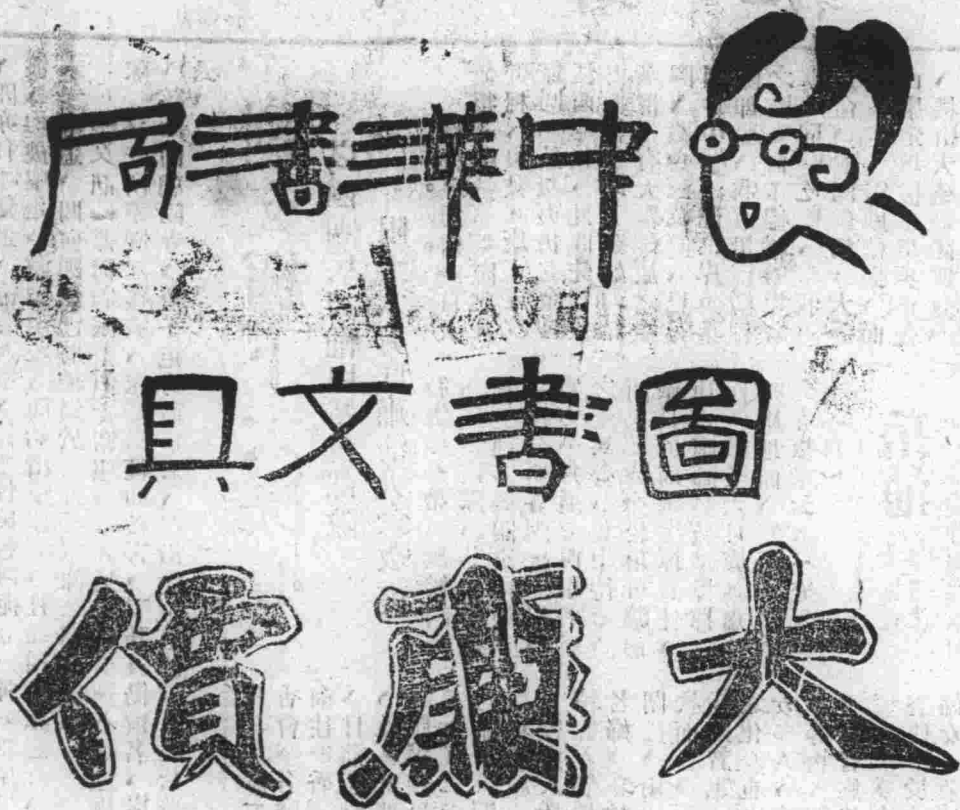 中華書局
圖書文具
大廉價